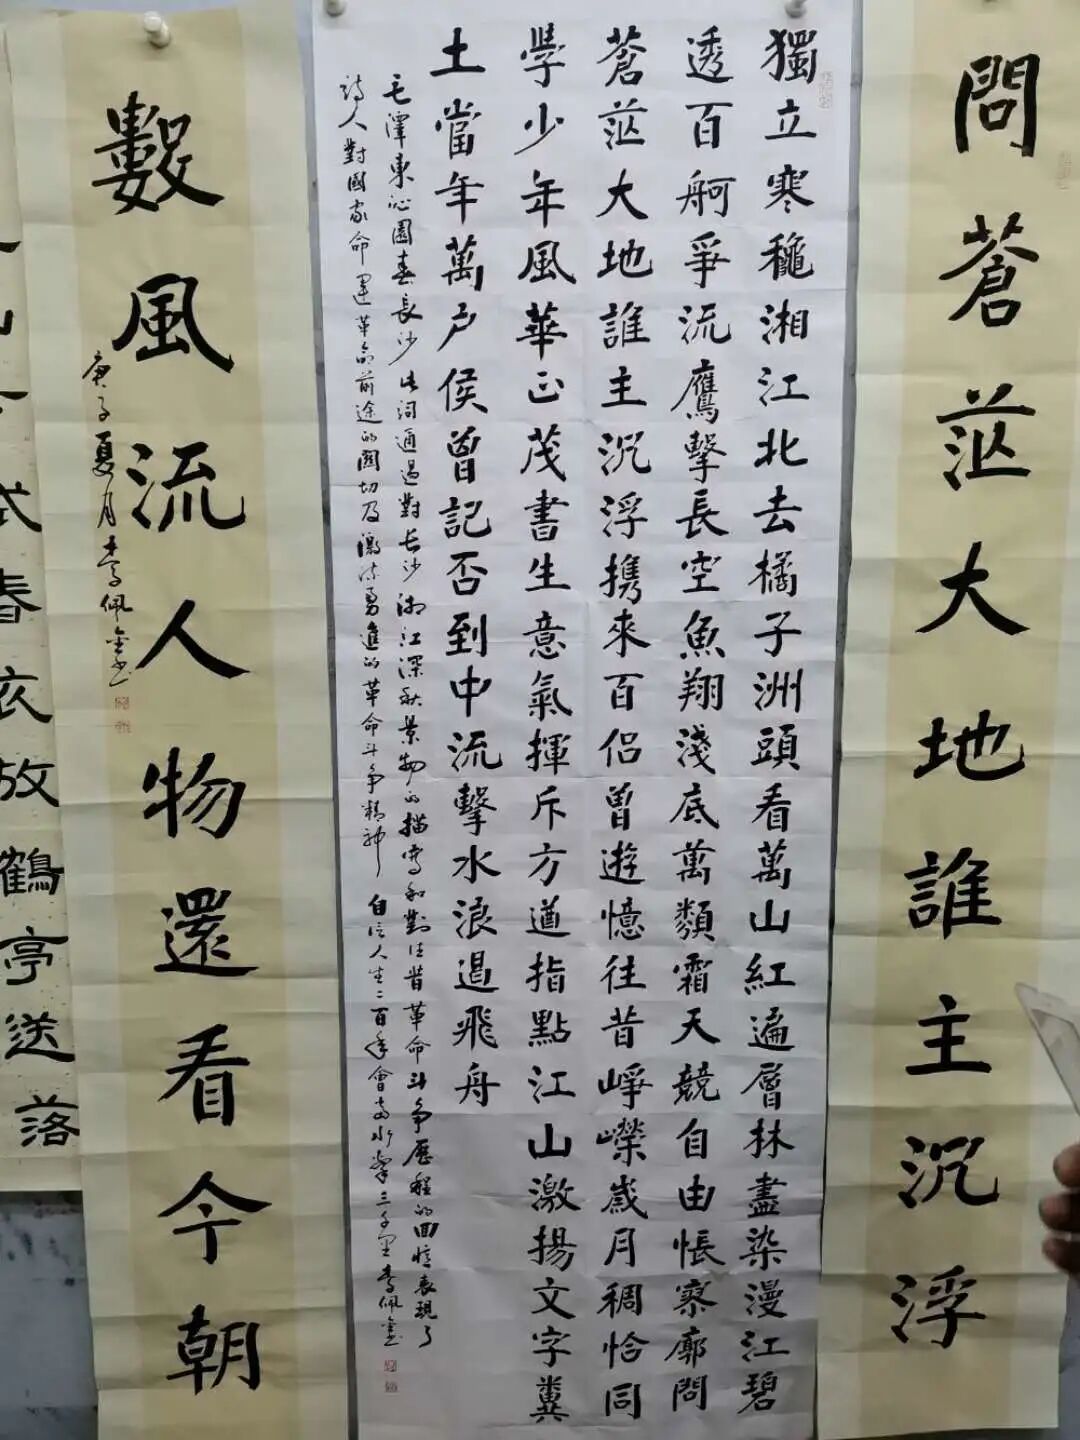 問蒼茫大地誰主沉浮
獨立寒穐湘江北去橘子洲頭看萬山紅遍層林盡染漫江碧
透百舸爭流鷹擊長空魚翔淺底萬類霜天競自由悵寥廓問
蒼茫大地誰主沉浮携來百侶曾遊憶往昔崢嶸歲月稠恰同
學少年風華正茂書生意氣揮斥方遒指點江山激揚文字糞
土當年萬户侯曾記否到中流擊水浪遏飛舟
毛澤東沁園春長沙 此詞通過對长沙湘江深秋景物的描寫和對往昔革命斗争歷程的回憶表現了
詩人對國家命運革命前途的關切及激流勇進的革命斗争精神 自信人生二百年會當水擊三千里 李佩金
數風流人物還看今朝
庚子夏月李佩金書
試春衣放鶴亭送落